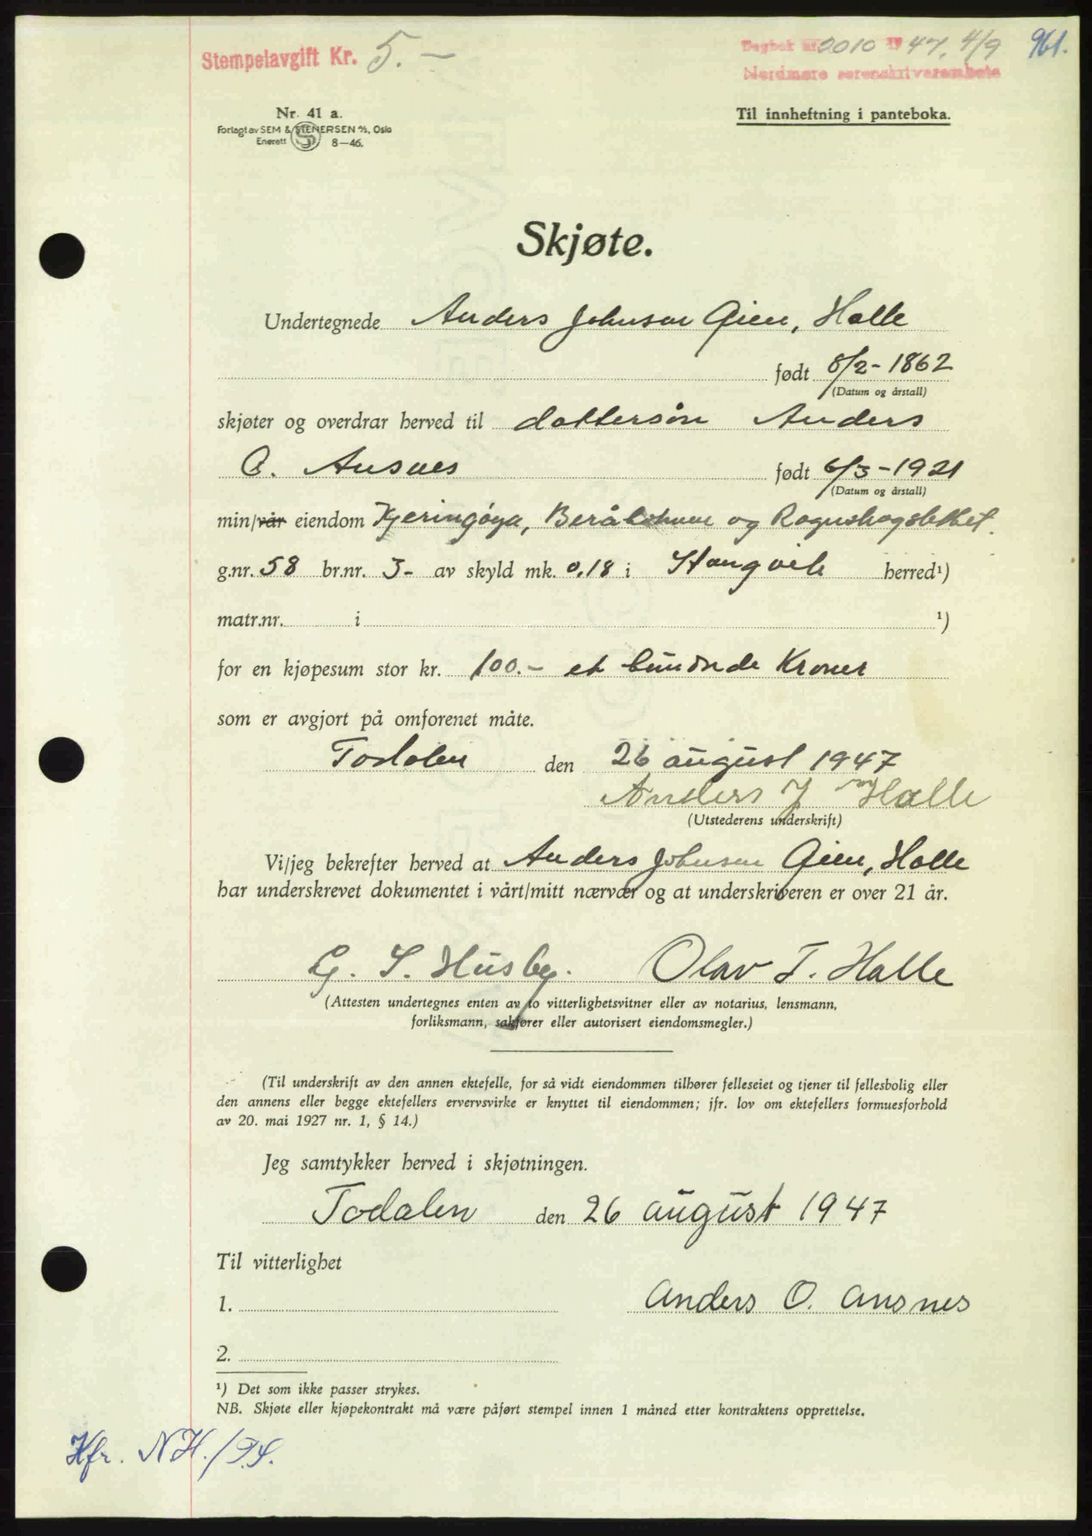 Stempelavgift Kr. 5.—
Dagbok nr. 2010 1947, 4/9 961.
Nordmøre sorenskriverembete
Nr. 41 a.
Forlagt av SEM & STENERSEN A/S, Oslo
Enerett 8—46.
Til innheftning i panteboka.
Skjøte.
Undertegnede Anders Johnsen Qien, Halle
født 8/2-1862
(Datum og årstall)
skjøter og overdrar herved til dattersøn Anders
O. Ansnes født 6/3-1921
(Datum og årstall)
min/vår eiendom Kjeringøya, og
g.nr. 58 br.nr. 3- av skyld mk. 0.18 i Stangvik herred¹)
matr.nr. i ¹)
for en kjøpesum stor kr. 100.- et hundrde Kroner
som er avgjort på omforenet måte.
Todalen den 26 august 1947
Anders J Halle
(Utstederens underskrift)
Vi/jeg bekrefter herved at Anders Johnsen Qien, Halle
har underskrevet dokumentet i vårt/mitt nærvær og at underskriveren er over 21 år.
G. S. Husby. Olav T. Halle
(Attesten undertegnes enten av to vitterlighetsvitner eller av notarius, lensmann,
forliksmann, sakfører eller autorisert eiendomsmegler.)
(Til underskrift av den annen ektefelle, for så vidt eiendommen tilhører felleseiet og tjener til fellesbolig eller
den annens eller begge ektefellers ervervsvirke er knyttet til eiendommen; jfr. lov om ektefellers formuesforhold
av 20. mai 1927 nr. 1, § 14.)
Jeg samtykker herved i skjøtningen.
Todalen den 26 august 1947
Til vitterlighet
1. Anders O. Ansnes
2.
¹) Det som ikke passer strykes.
NB. Skjøte eller kjøpekontrakt må være påført stempel innen 1 måned etter kontraktens opprettelse.
Kfr. NH./P.S.